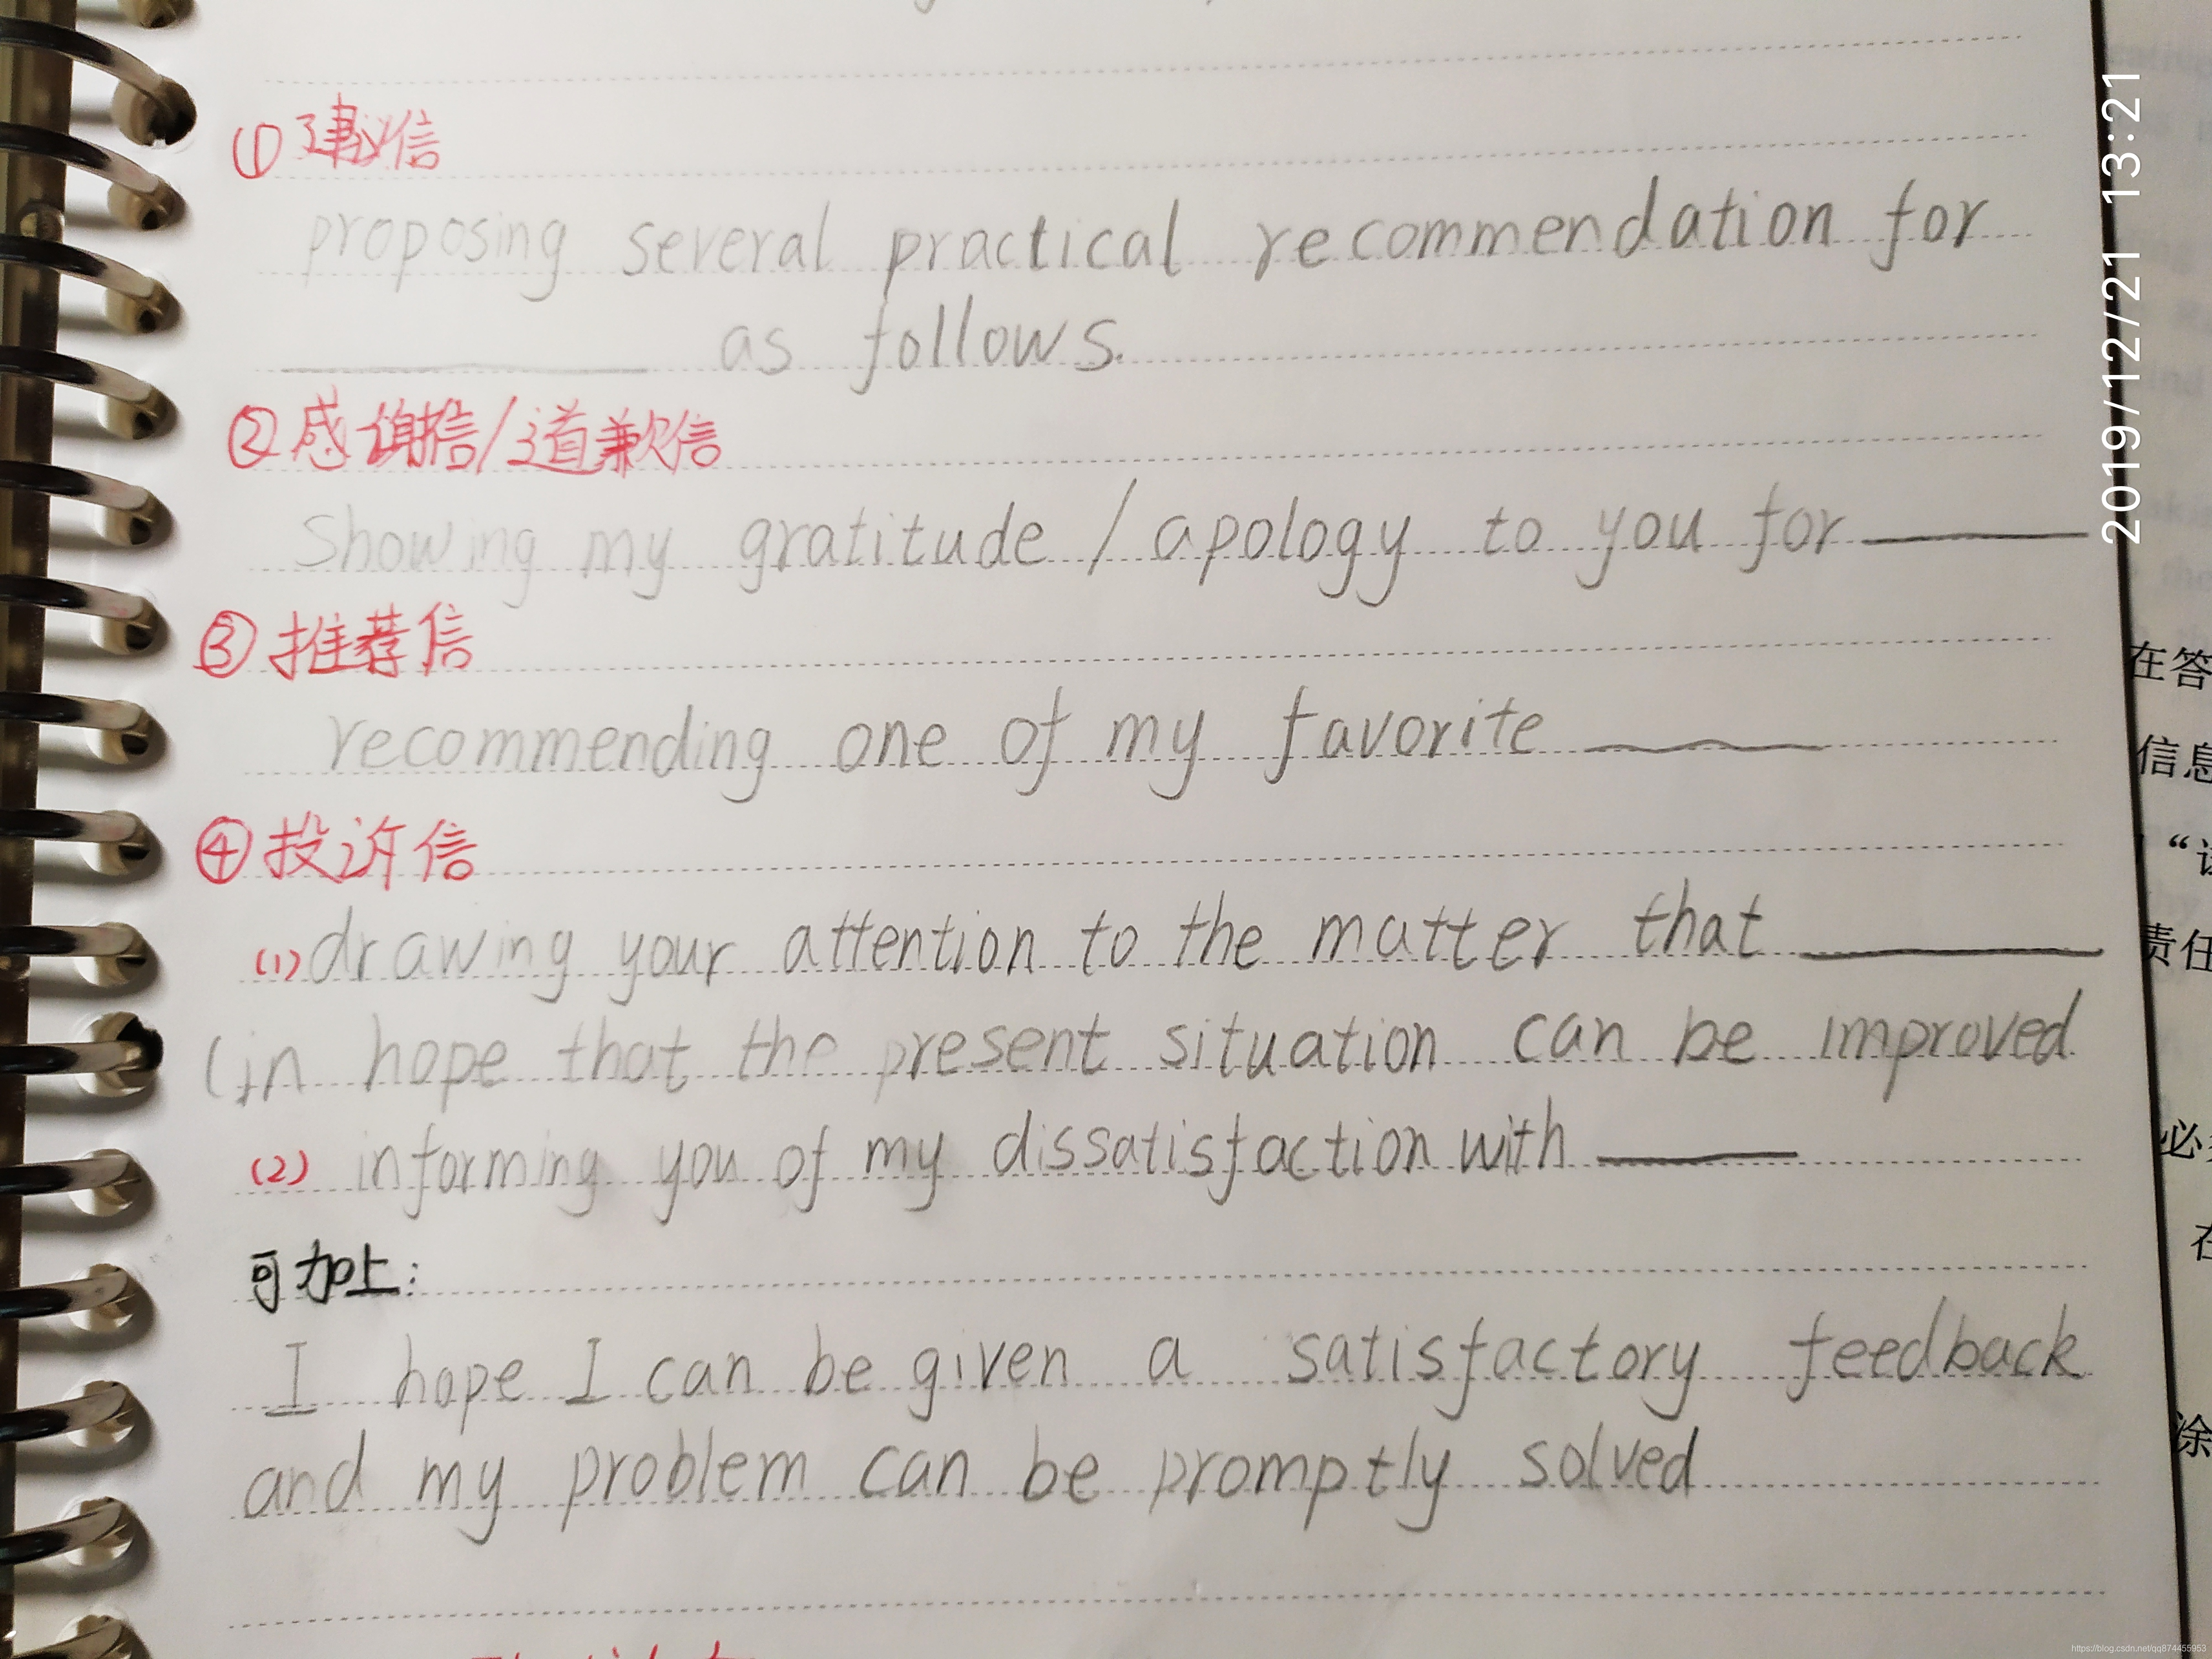 ① 建议信
proposing several practical recommendation for
______ as follows.
② 感谢信/道歉信
Showing my gratitude / apology to you for ______
③ 推荐信
recommending one of my favorite ______
④ 投诉信
(1) drawing your attention to the matter that ______
(in hope that the present situation can be improved
(2) informing you of my dissatisfaction with ______
可加上:
I hope I can be given a satisfactory feedback
and my problem can be promptly solved
2019/12/21 13:21
在答
信息
责任
必
在
涂
https://blog.csdn.net/qq874455953